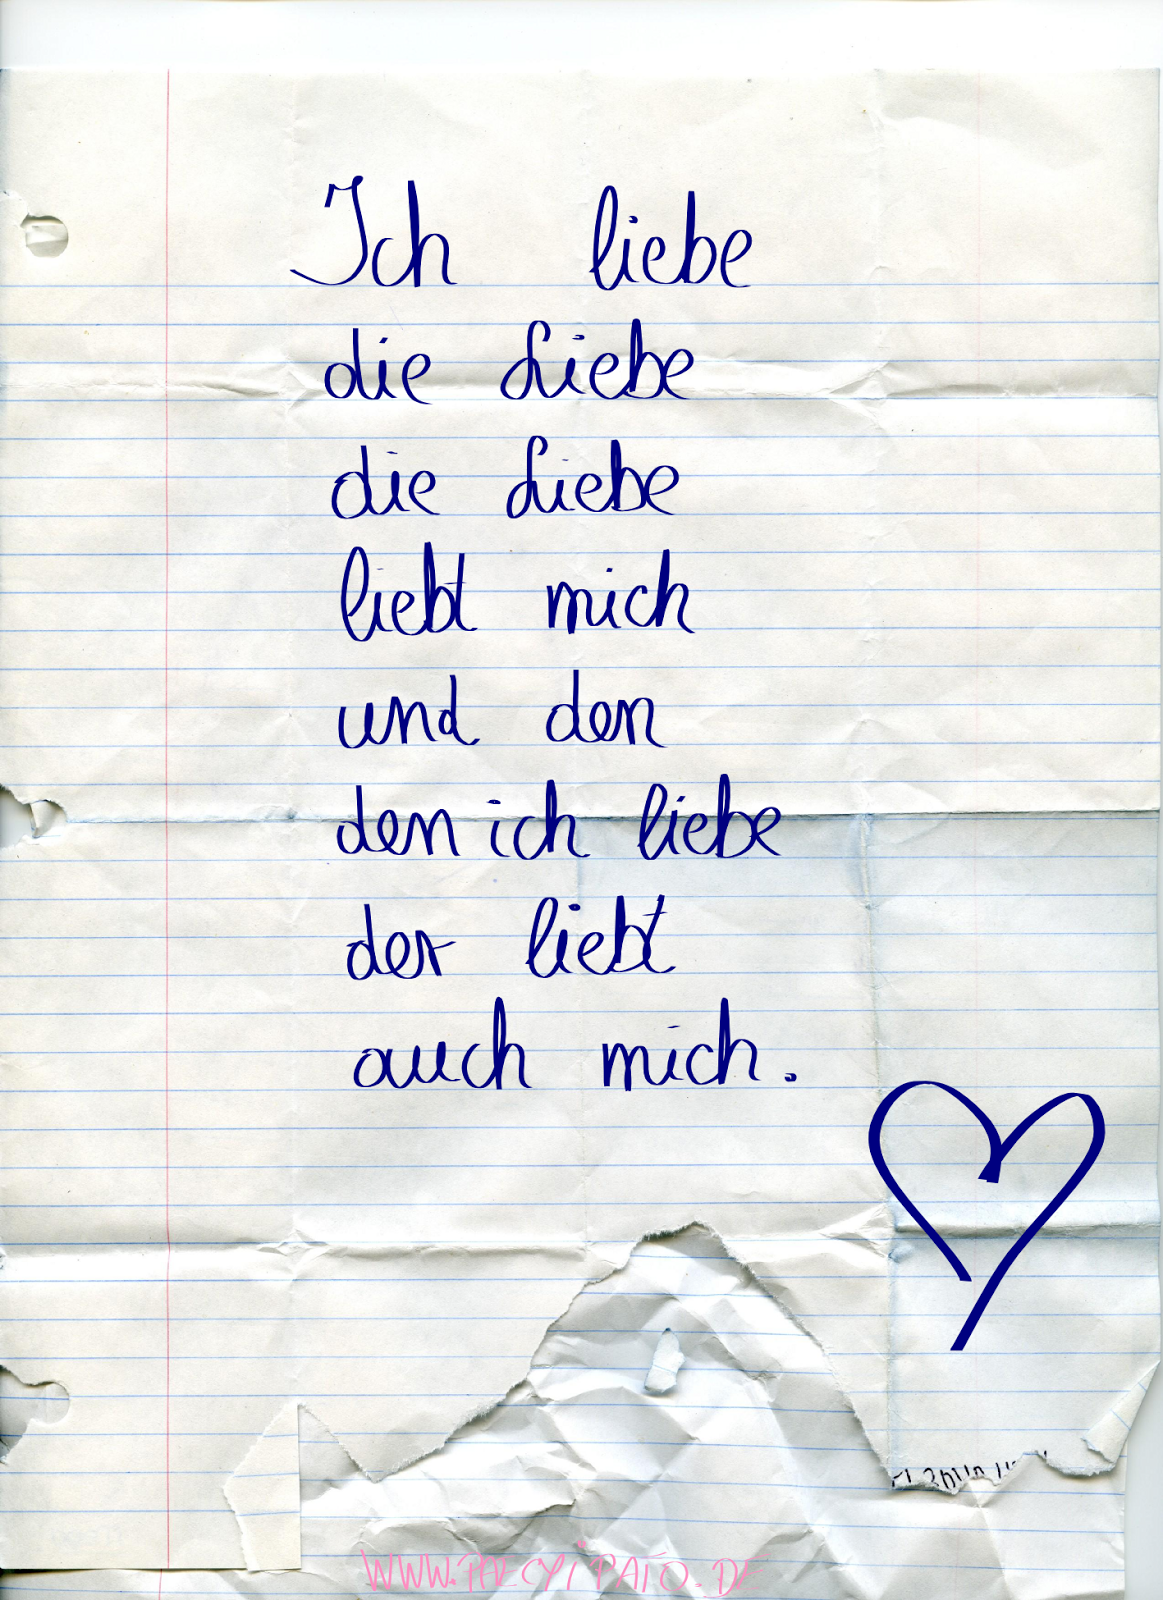 Ich liebe
die Liebe
die Liebe
liebt mich
und den
den ich liebe
der liebt
auch mich.